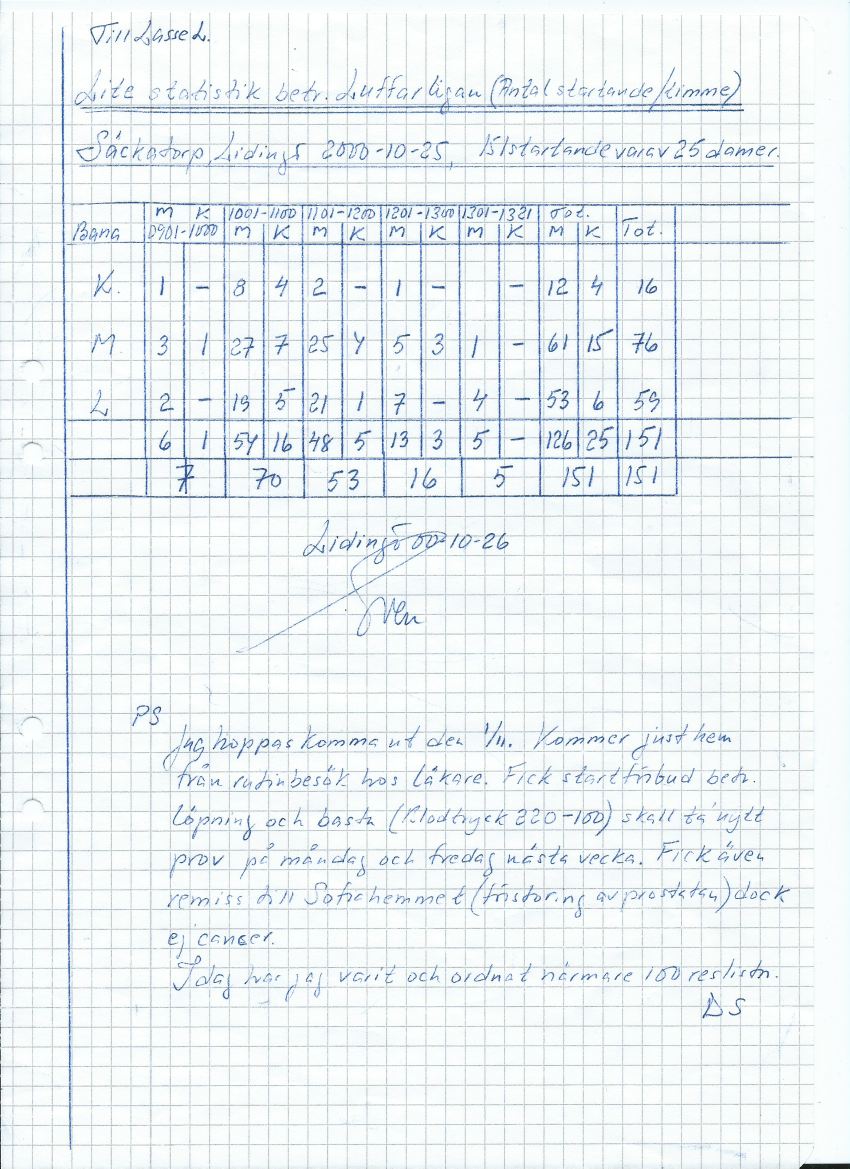 Till Lasse L.
Lite statistik betr. Luffarligan (Antal startande/timme)
Säckatorp, Lidingö 2000-10-25, 151 startande varav 25 damer.
M K 1001-1100 1101-1200 1201-1300 1301-1321 Tot.
Bana 0901-1000 M K M K M K M K M K Tot.
K. 1 - 8 4 2 - 1 - - 12 4 16
M 3 1 27 7 25 4 5 3 1 - 61 15 76
L 2 - 19 5 21 1 7 - 4 - 53 6 59
6 1 54 16 48 5 13 3 5 - 126 25 151
7 70 53 16 5 151 151
Lidingö 00-10-26
PS
Jag hoppas komma ut den 1/11. Kommer just hem
från rutinbesök hos läkare. Fick startförbud betr.
löpning och bastu (Blodtryck 220-100) skall ta nytt
prov på måndag och fredag nästa vecka. Fick även
remiss till Sofiahemmet (förstoring av prostatan) dock
ej cancer.
Idag har jag varit och ordnat närmare 100
DS